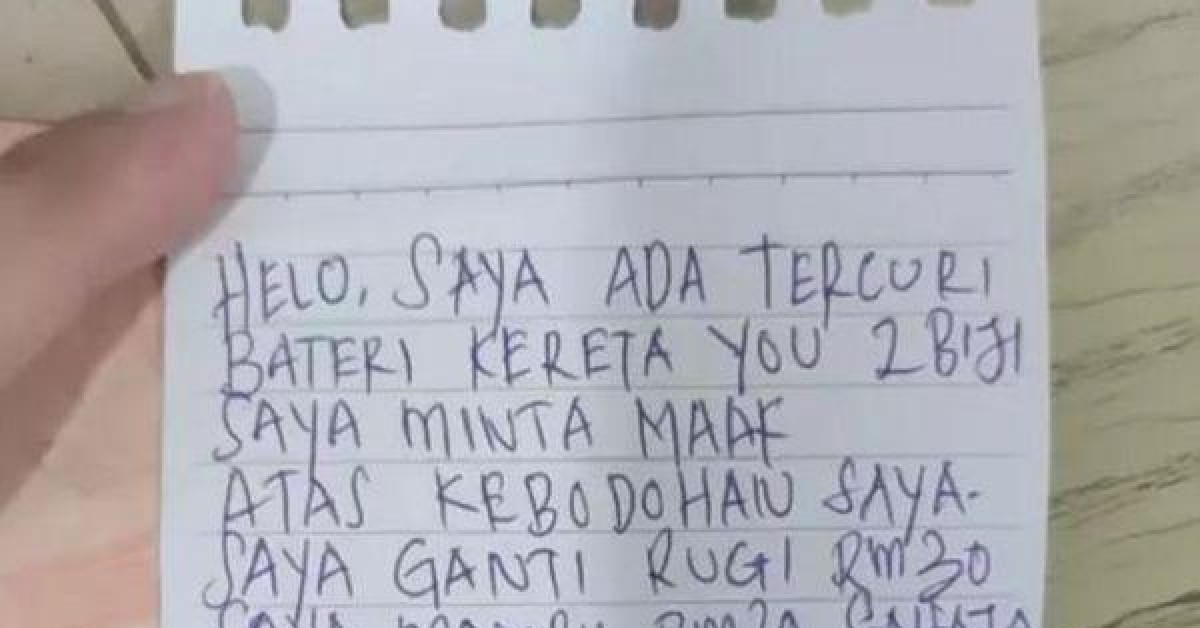 HELO, SAYA ADA TERCURI
BATERI KERETA YOU 2 BIJI
SAYA MINTA MAAF
ATAS KEBODOHAN SAYA.
SAYA GANTI RUGI RM30
SAYA